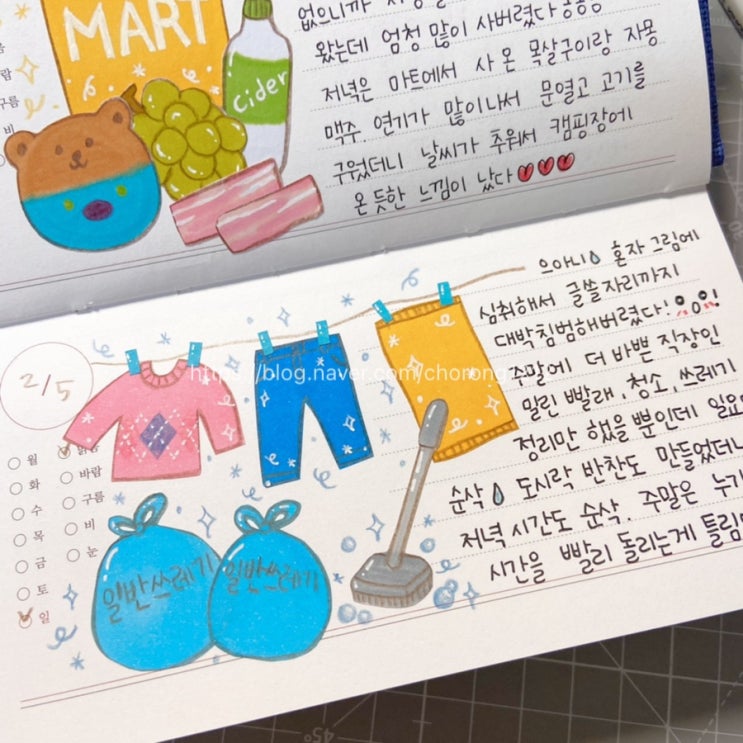 MART
cider
없으니까
왔는데 엄청 많이 사버렸다
저녁은 마트에서 사 온 목살구이랑 자몽
맥주. 연기가 많이나서 문열고 고기를
구웠더니 날씨가 추워서 캠핑장에
온 듯한 느낌이 났다
으아니 혼자 그림에
심취해서 글쓸자리까지
대박침범해버렸다!
주말에 더 바쁜 직장인
밀린 빨래, 청소, 쓰레기
정리만 했을 뿐인데 일요
순삭 도시락 반찬도 만들었더니
저녁시간도 순삭. 주말은 누가
시간을 빨리 돌리는게 틀림
2/5
월 맑음
화 바람
수 구름
목 비
금 눈
토
일
일반쓰레기
일반쓰레기
바람
구름
비
https://blog.naver.com/chorong
45°